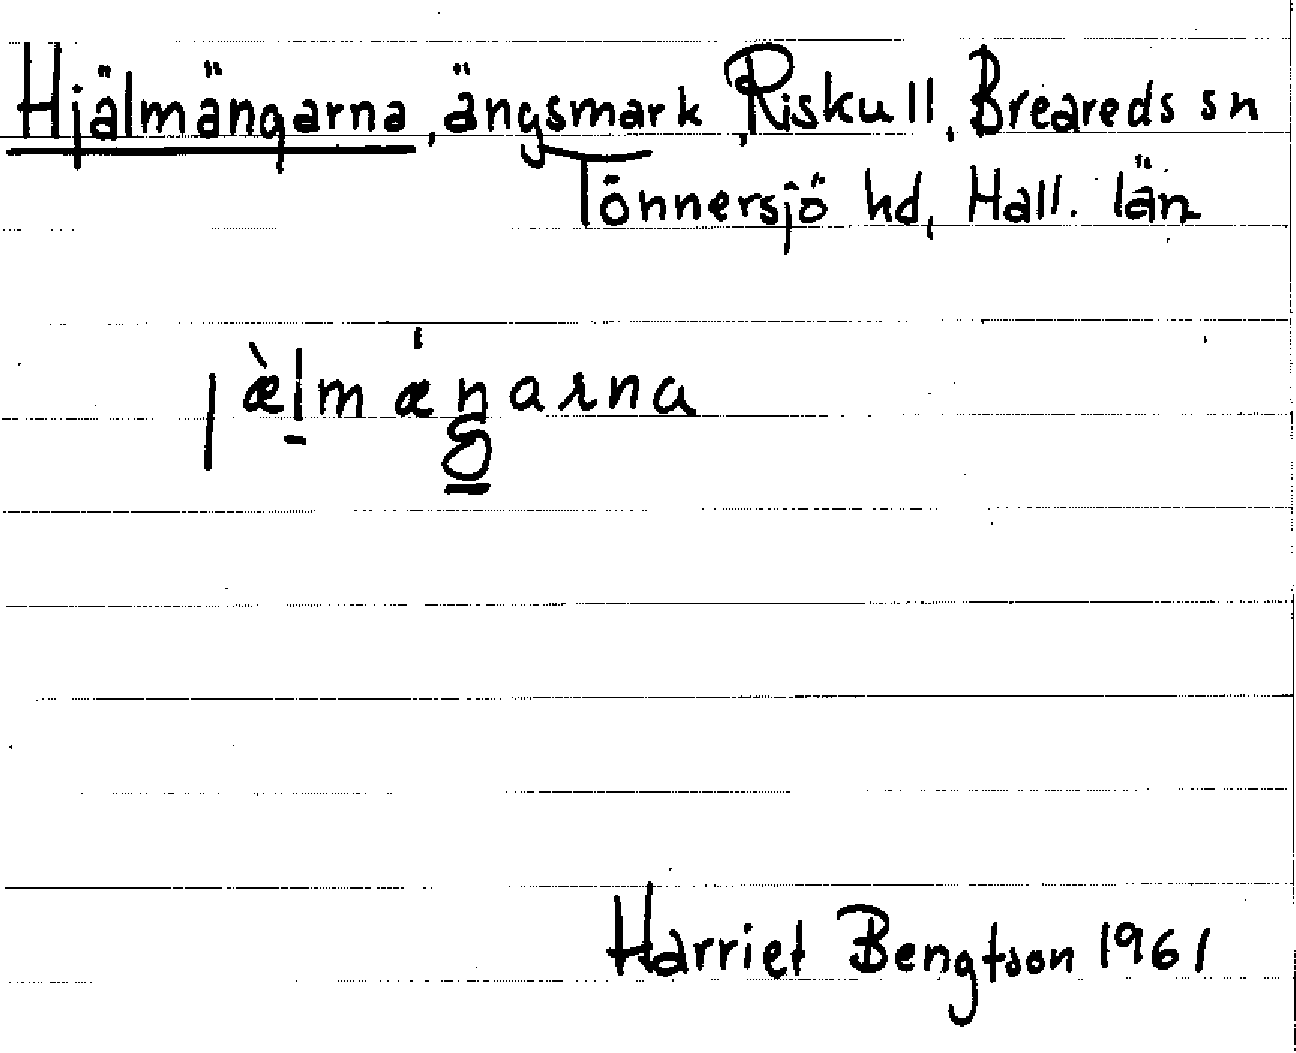 Hjälmängarna, ängsmark, Riskull, Breareds sn
Tönnersjö hd, Hall. län
jæ̀l̠mǽŋarna
Harriet Bengtson 1961